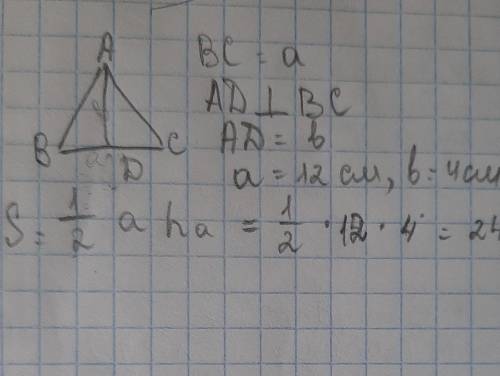 A
B
C
D
BC = a
AD ⊥ BC
AD = b
a = 12 см, b = 4 см
S = 1/2 a ha = 1/2 · 12 · 4 = 24